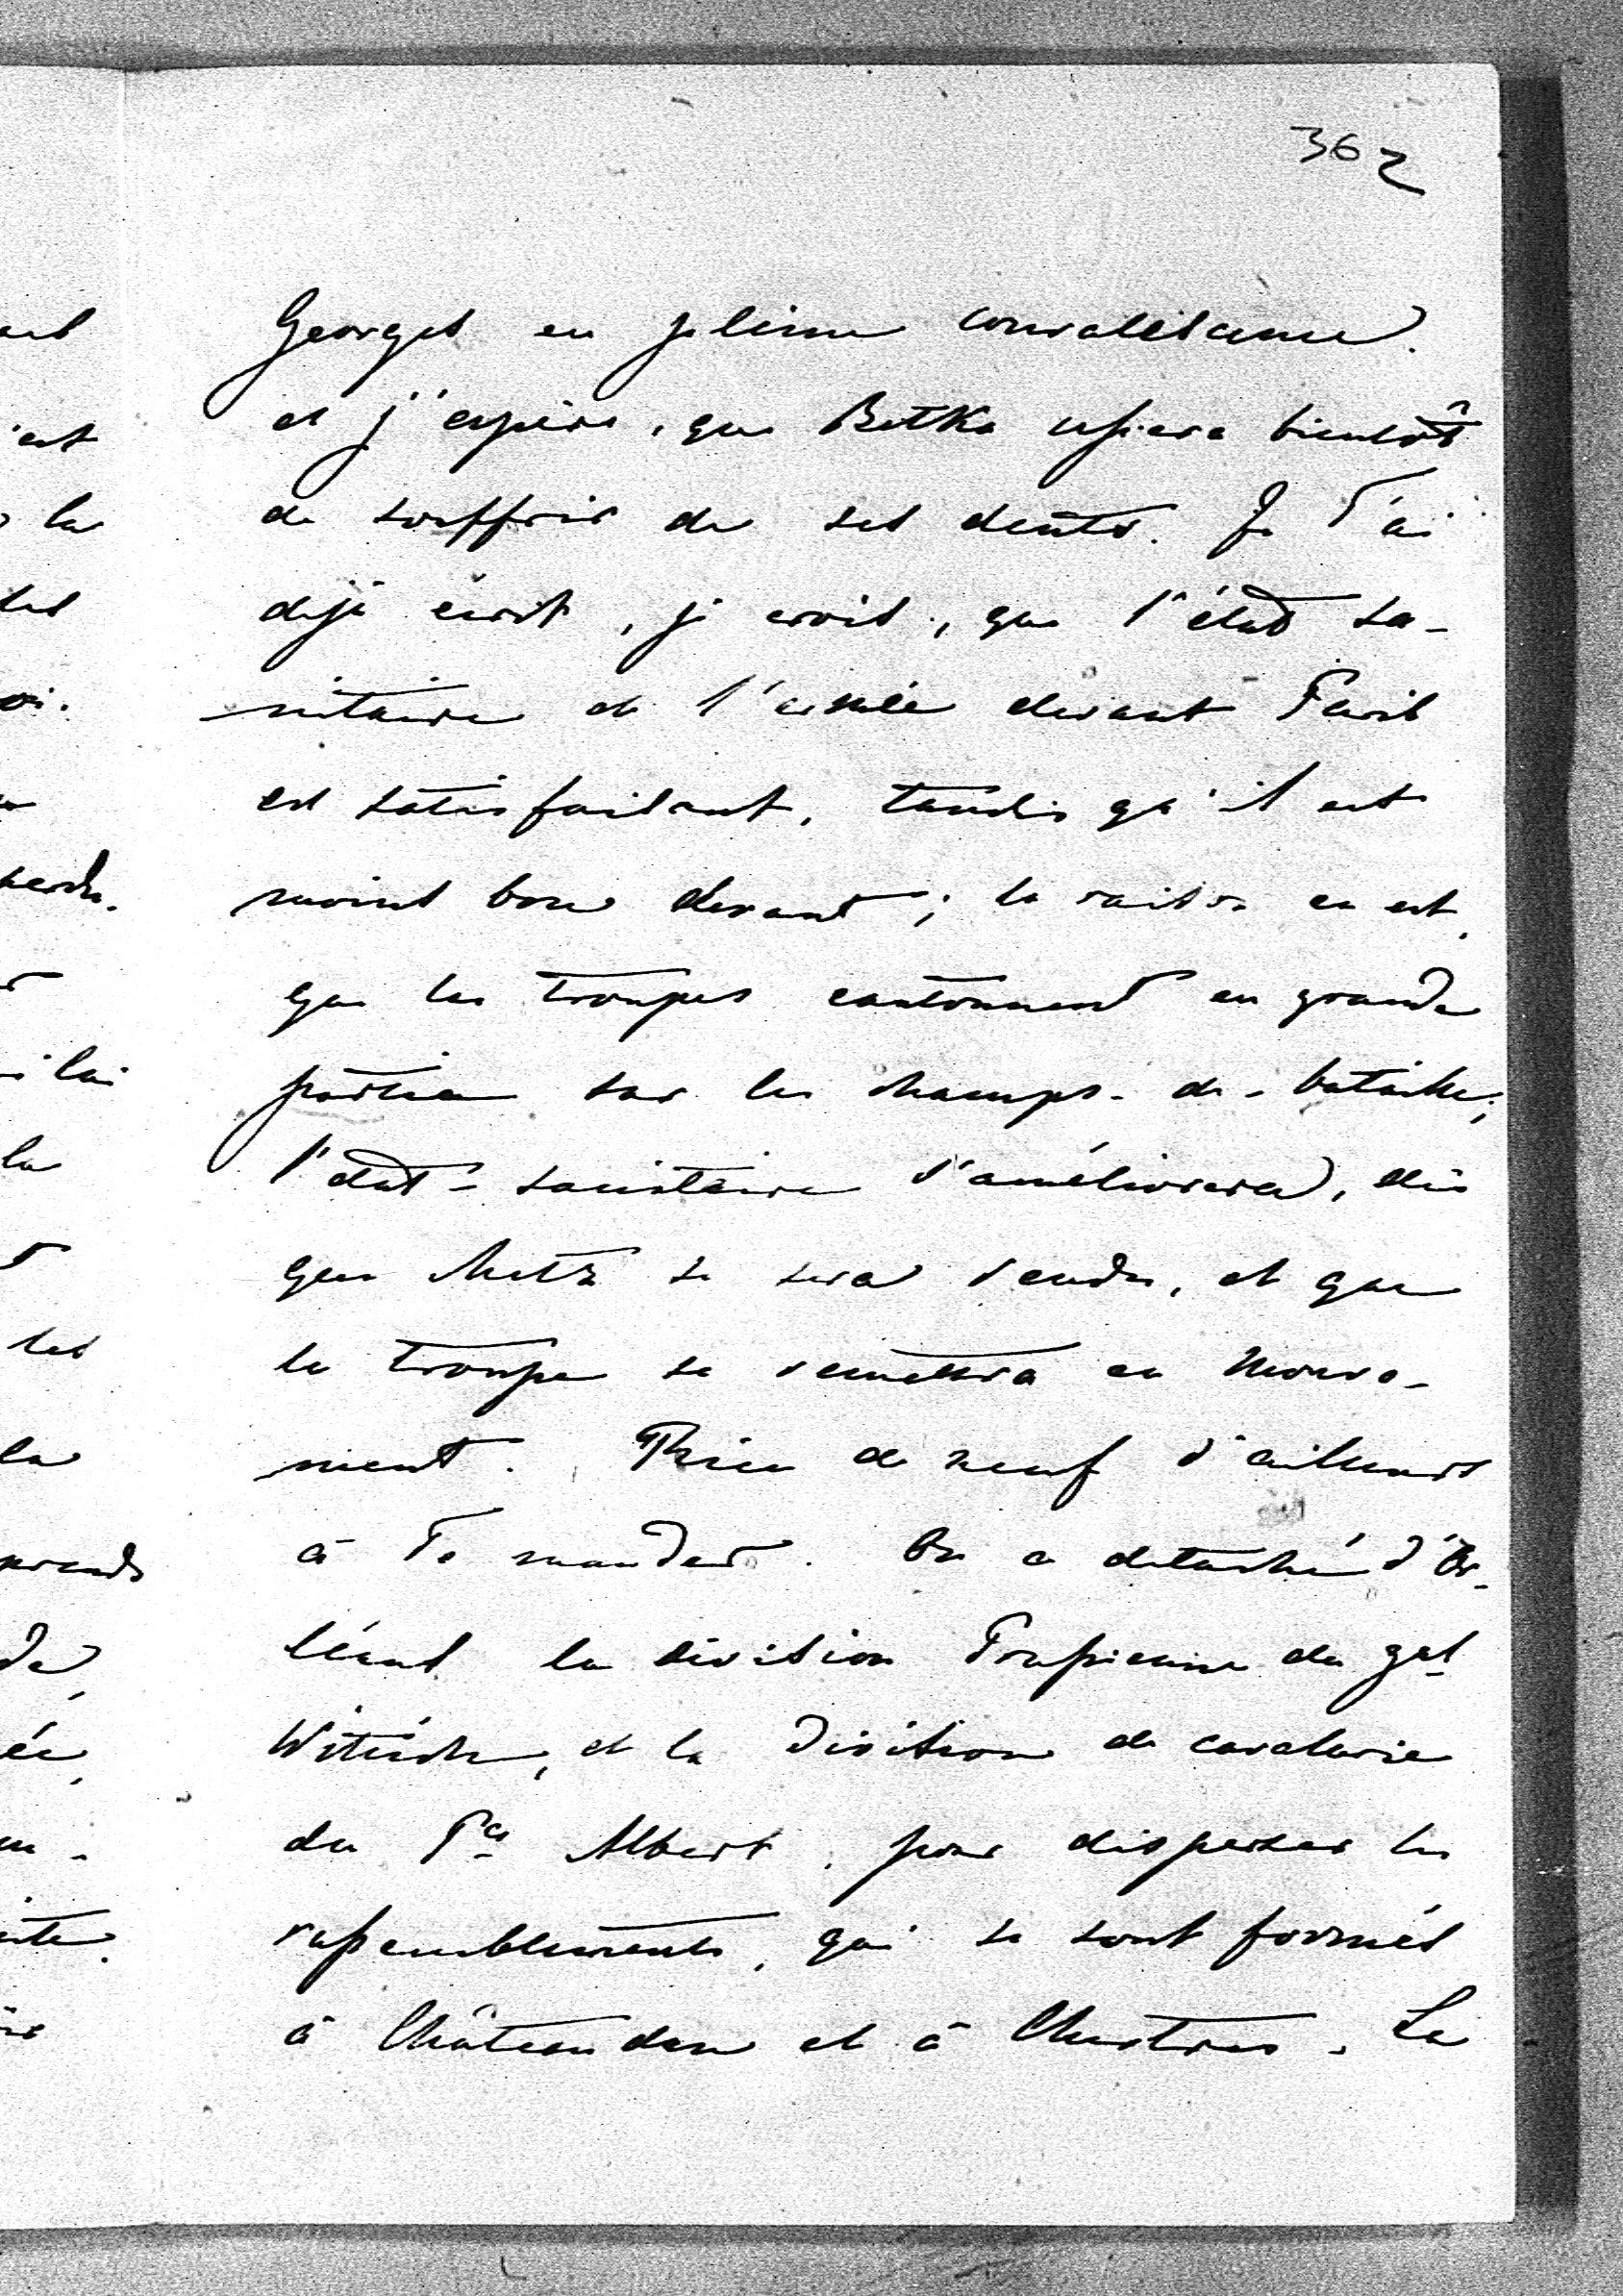 362
Georges en pleine convalescence.
et j'espère, que Botka cessera bientôt
de souffrir de ses dents. Je T'ai
déjà écrit, je crois, que l'état sa-
nitaire de l'armée devant Paris
est satisfaisant, tandis qu'il est
moins bon devant ; la raison en est,
que les troupes cantonnent en grande
partie sur les champs-de-bataille;
l'état-sanitaire s'améliorera, dès
que Metz se sera rendu, et que
la troupe se remettra en mouve-
ment. Rien de neuf d'ailleurs
à Te mander. On a détaché d'Or-
léans la division Prussienne du gal
Wittich, et la Division de cavalerie
du Pce Albert, pour disperser les
rassemblements, qui se sont formés
à Châteaudun et à Chartres. La